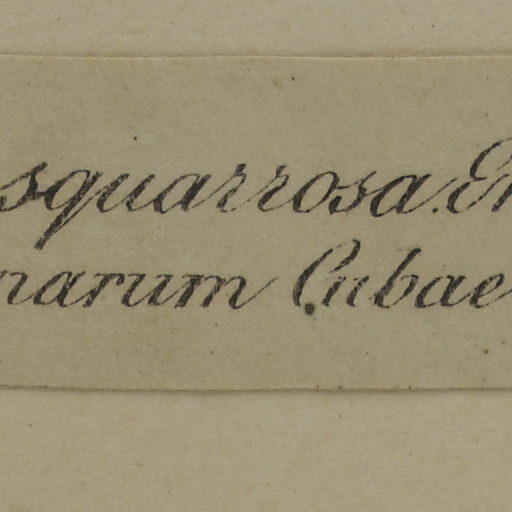 squarrosa.
narum Cubae